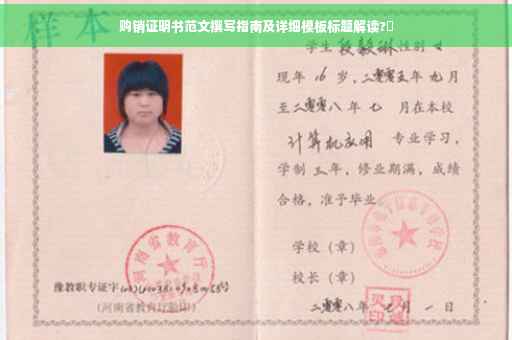 购销证明书范文撰写指南及详细模板标题解读?
样本
学生段毅琳性别女
现年16岁,二零零五年九月
至二零零八年七月在本校
计算机应用 专业学习,
学制三年,修业期满,成绩
合格,准予毕业
学校(章)
校长(章)
二零零八年七月一日
河南省教育厅
豫教职专证字
(河南省教育厅验印)